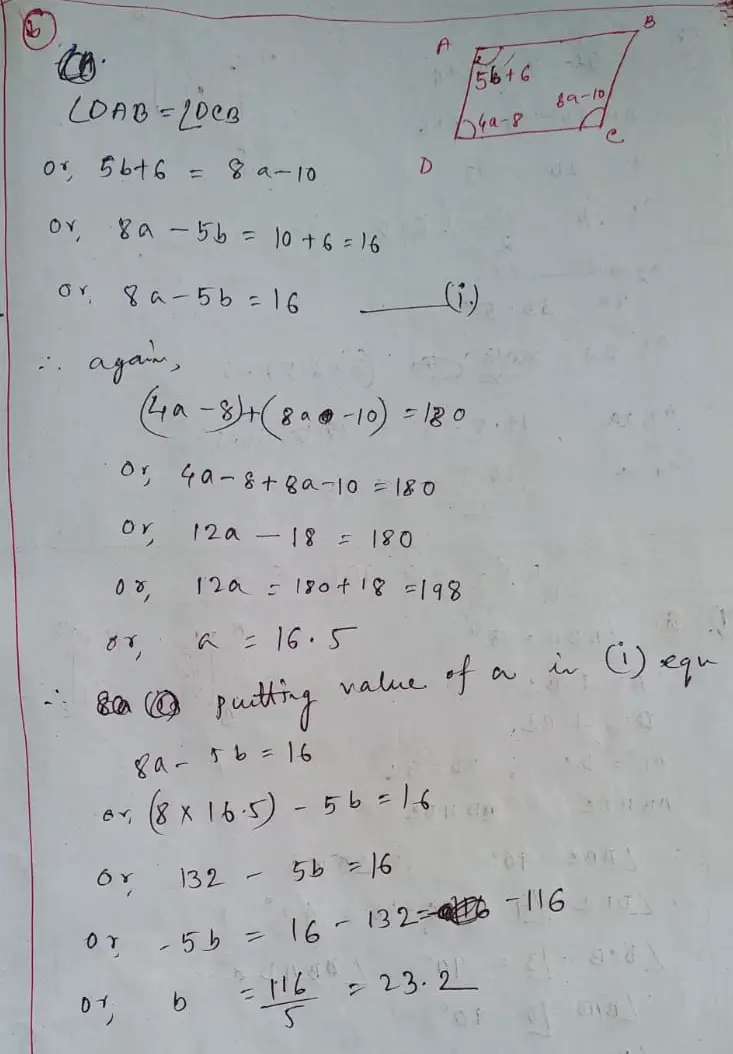 6
A
B
5b+6
8a-10
4a-8
C
D
∠DAB = ∠DCB
or, 5b+6 = 8a-10
or, 8a - 5b = 10+6 = 16
or, 8a - 5b = 16 ——— (i)
∴ again,
(4a - 8) + (8a - 10) = 180
or, 4a - 8 + 8a - 10 = 180
or, 12a - 18 = 180
or, 12a = 180 + 18 = 198
or, a = 16.5
∴ putting value of a in (i) equ
8a - 5b = 16
or, (8 × 16.5) - 5b = 16
or, 132 - 5b = 16
or, -5b = 16 - 132 = -116
or, b = 116/5 = 23.2